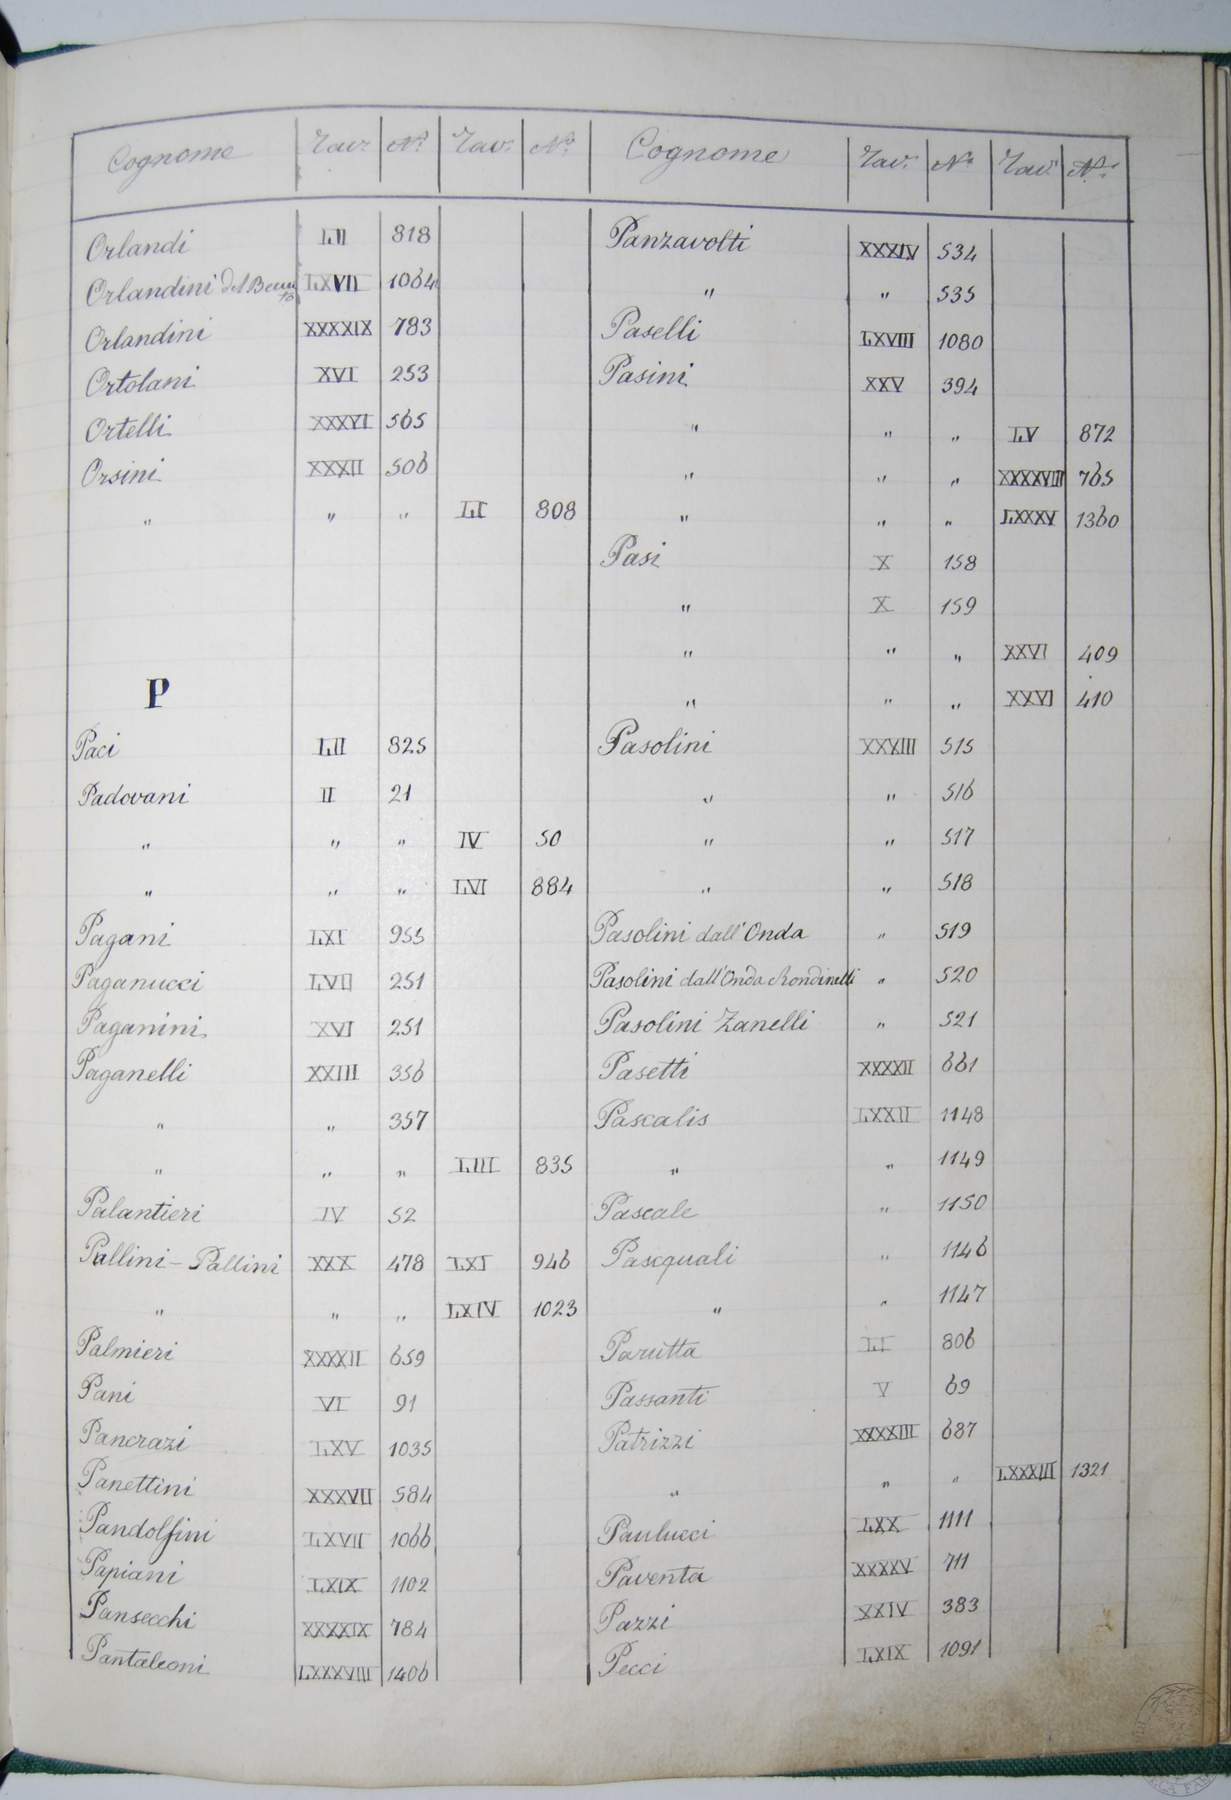 Cognome Tav. N.º Tav. N.º
Orlandi LII 818
Orlandini del Beccuto LXVII 1064
Orlandini XXXXIX 783
Ortolani XVI 253
Ortelli XXXVI 565
Orsini XXXII 506
" " " LI 808
P
Paci LII 825
Padovani II 21
" " " IV 50
" " " LVI 884
Pagani LXI 955
Paganucci LVII 251
Paganini XVI 251
Paganelli XXIII 356
" " 357
" " " LIII 835
Palantieri IV 52
Pallini - Pallini XXX 478 LXI 946
" " " LXIV 1023
Palmieri XXXXII 659
Pani VI 91
Pancrazi LXV 1035
Panettini XXXVII 584
Pandolfini LXVII 1066
Papiani LXIX 1102
Pansecchi XXXXIX 784
Pantaleoni LXXXVIII 1406
Cognome Tav. N.º Tav. N.º
Panzavolti XXXIV 534
" " 535
Paselli LXVIII 1080
Pasini XXV 394
" " " LV 872
" " " XXXXVIII 765
" " " LXXXV 1360
Pasi X 158
" X 159
" " " XXVI 409
" " " XXVI 410
Pasolini XXXIII 515
" " 516
" " 517
" " 518
Pasolini dall'Onda " 519
Pasolini dall'Onda Rondinelli " 520
Pasolini Zanelli " 521
Pasetti XXXXII 661
Pascalis LXXII 1148
" " 1149
Pascale " 1150
Pascquali " 1146
" " 1147
Parutta LI 806
Passanti V 69
Patrizzi XXXXIII 687
" " " LXXXIII 1321
Paulucci LXX 1111
Paventa XXXXV 711
Pazzi XXIV 383
Pecci LXIX 1091